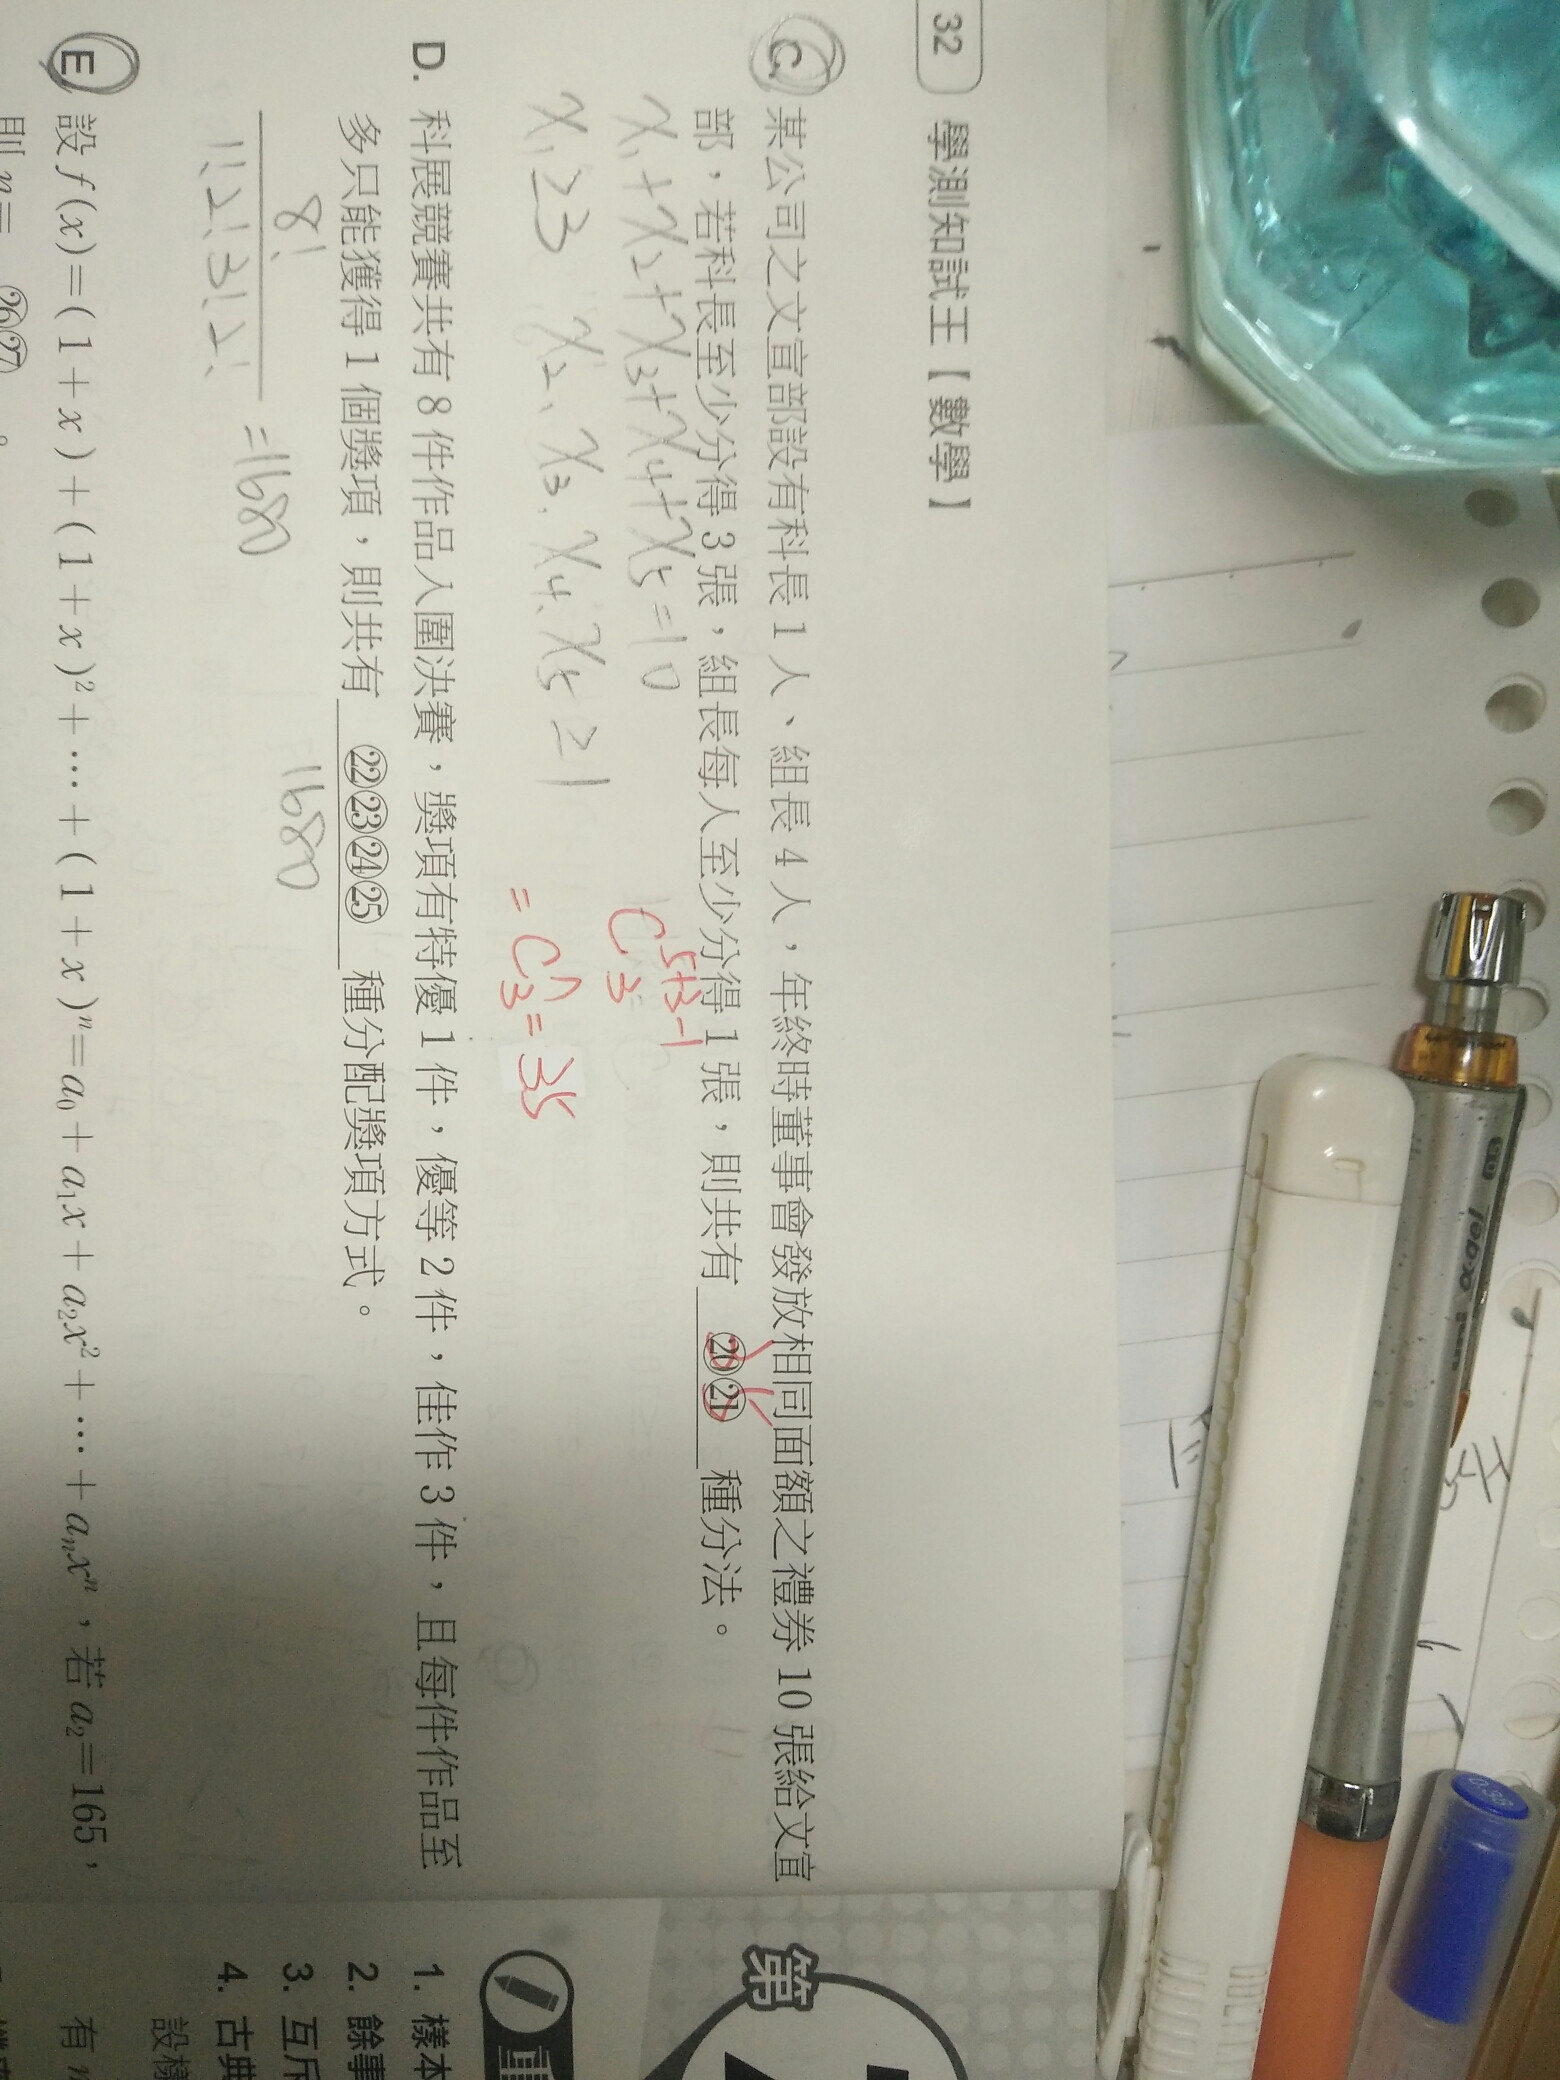 32 學測知試王【數學】
C. 某公司之文宣部設有科長 1 人、組長 4 人，年終時董事會發放相同面額之禮券 10 張給文宣
部，若科長至少分得 3 張，組長每人至少分得 1 張，則共有 ⑳㉑ 種分法。
x₁+x₂+x₃+x₄+x₅=10
x₁≥3 x₂、x₃、x₄、x₅≥1
C₃⁵⁺³⁻¹
=C₃⁷=35
D. 科展競賽共有 8 件作品入圍決賽，獎項有特優 1 件，優等 2 件，佳作 3 件，且每件作品至
多只能獲得 1 個獎項，則共有 ㉒㉓㉔㉕ 種分配獎項方式。
1680
8!
1!2!3!2! =1680
E 設 f(x)=(1+x)+(1+x)²+…+(1+x)ⁿ=a₀+a₁x+a₂x²+…+aₙxⁿ，若 a₂=165，
則 n= ㉖㉗ 。
第
1. 樣本
2. 餘事
3. 互斥
4. 古典
設樣
有 n